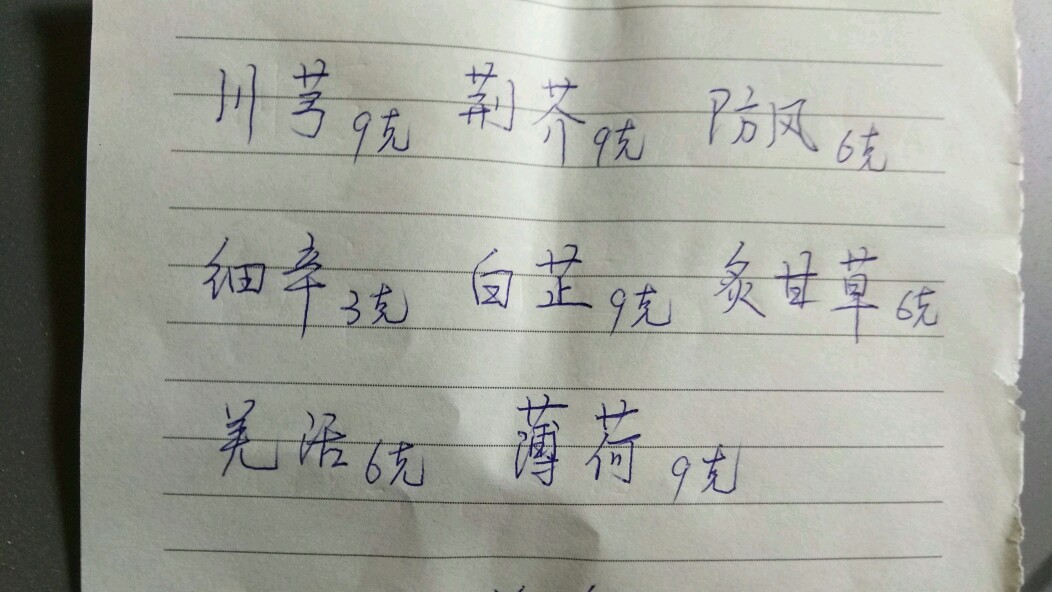 川芎9克 荆芥9克 防风6克
细辛3克 白芷9克 炙甘草6克
羌活6克 薄荷9克